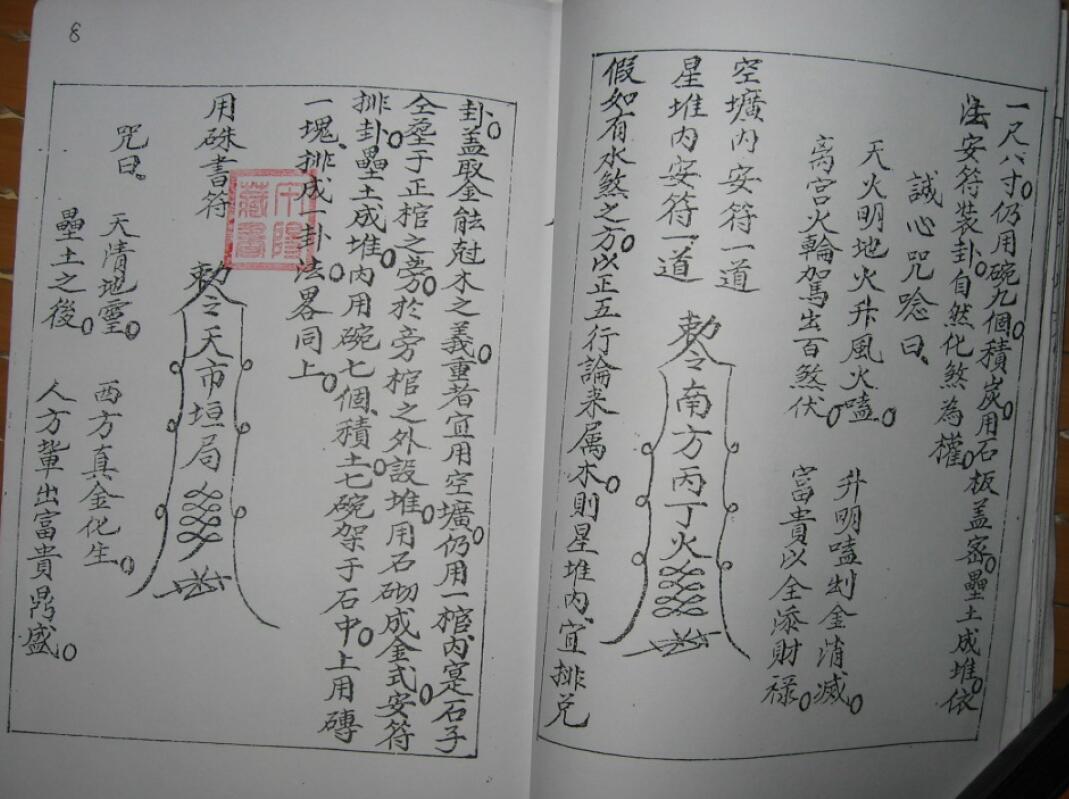 一尺六寸。仍用碗九個。積炭。用石板盖密。壘土成堆。依
法安符装卦。自然化煞為權。
誠心咒唸曰、
天火明地火升風火嗑。升明嗑出金消滅。
离宫火輪駕出百煞伏。富貴以全添財禄。
空壙内安符一道
星堆内安符一道
勅令南方丙丁火
假如有水煞之方。以正五行論来属木。則星堆内、宜排兑
卦。盖取金能尅木之義。重者宜用空壙。仍用一棺内、寔石子
仝塟于正棺之旁。於旁棺之外設堆。用石砌成金式。安符
排卦。壘土成堆。内用碗七個、積土。七碗架于石中。上用磚
一塊、排成一卦。法畧同上。
用硃書符
勅令天市垣局
咒曰。
天清地靈。西方真金化生。
壘土之後。人方輩出富貴鼎盛。
8